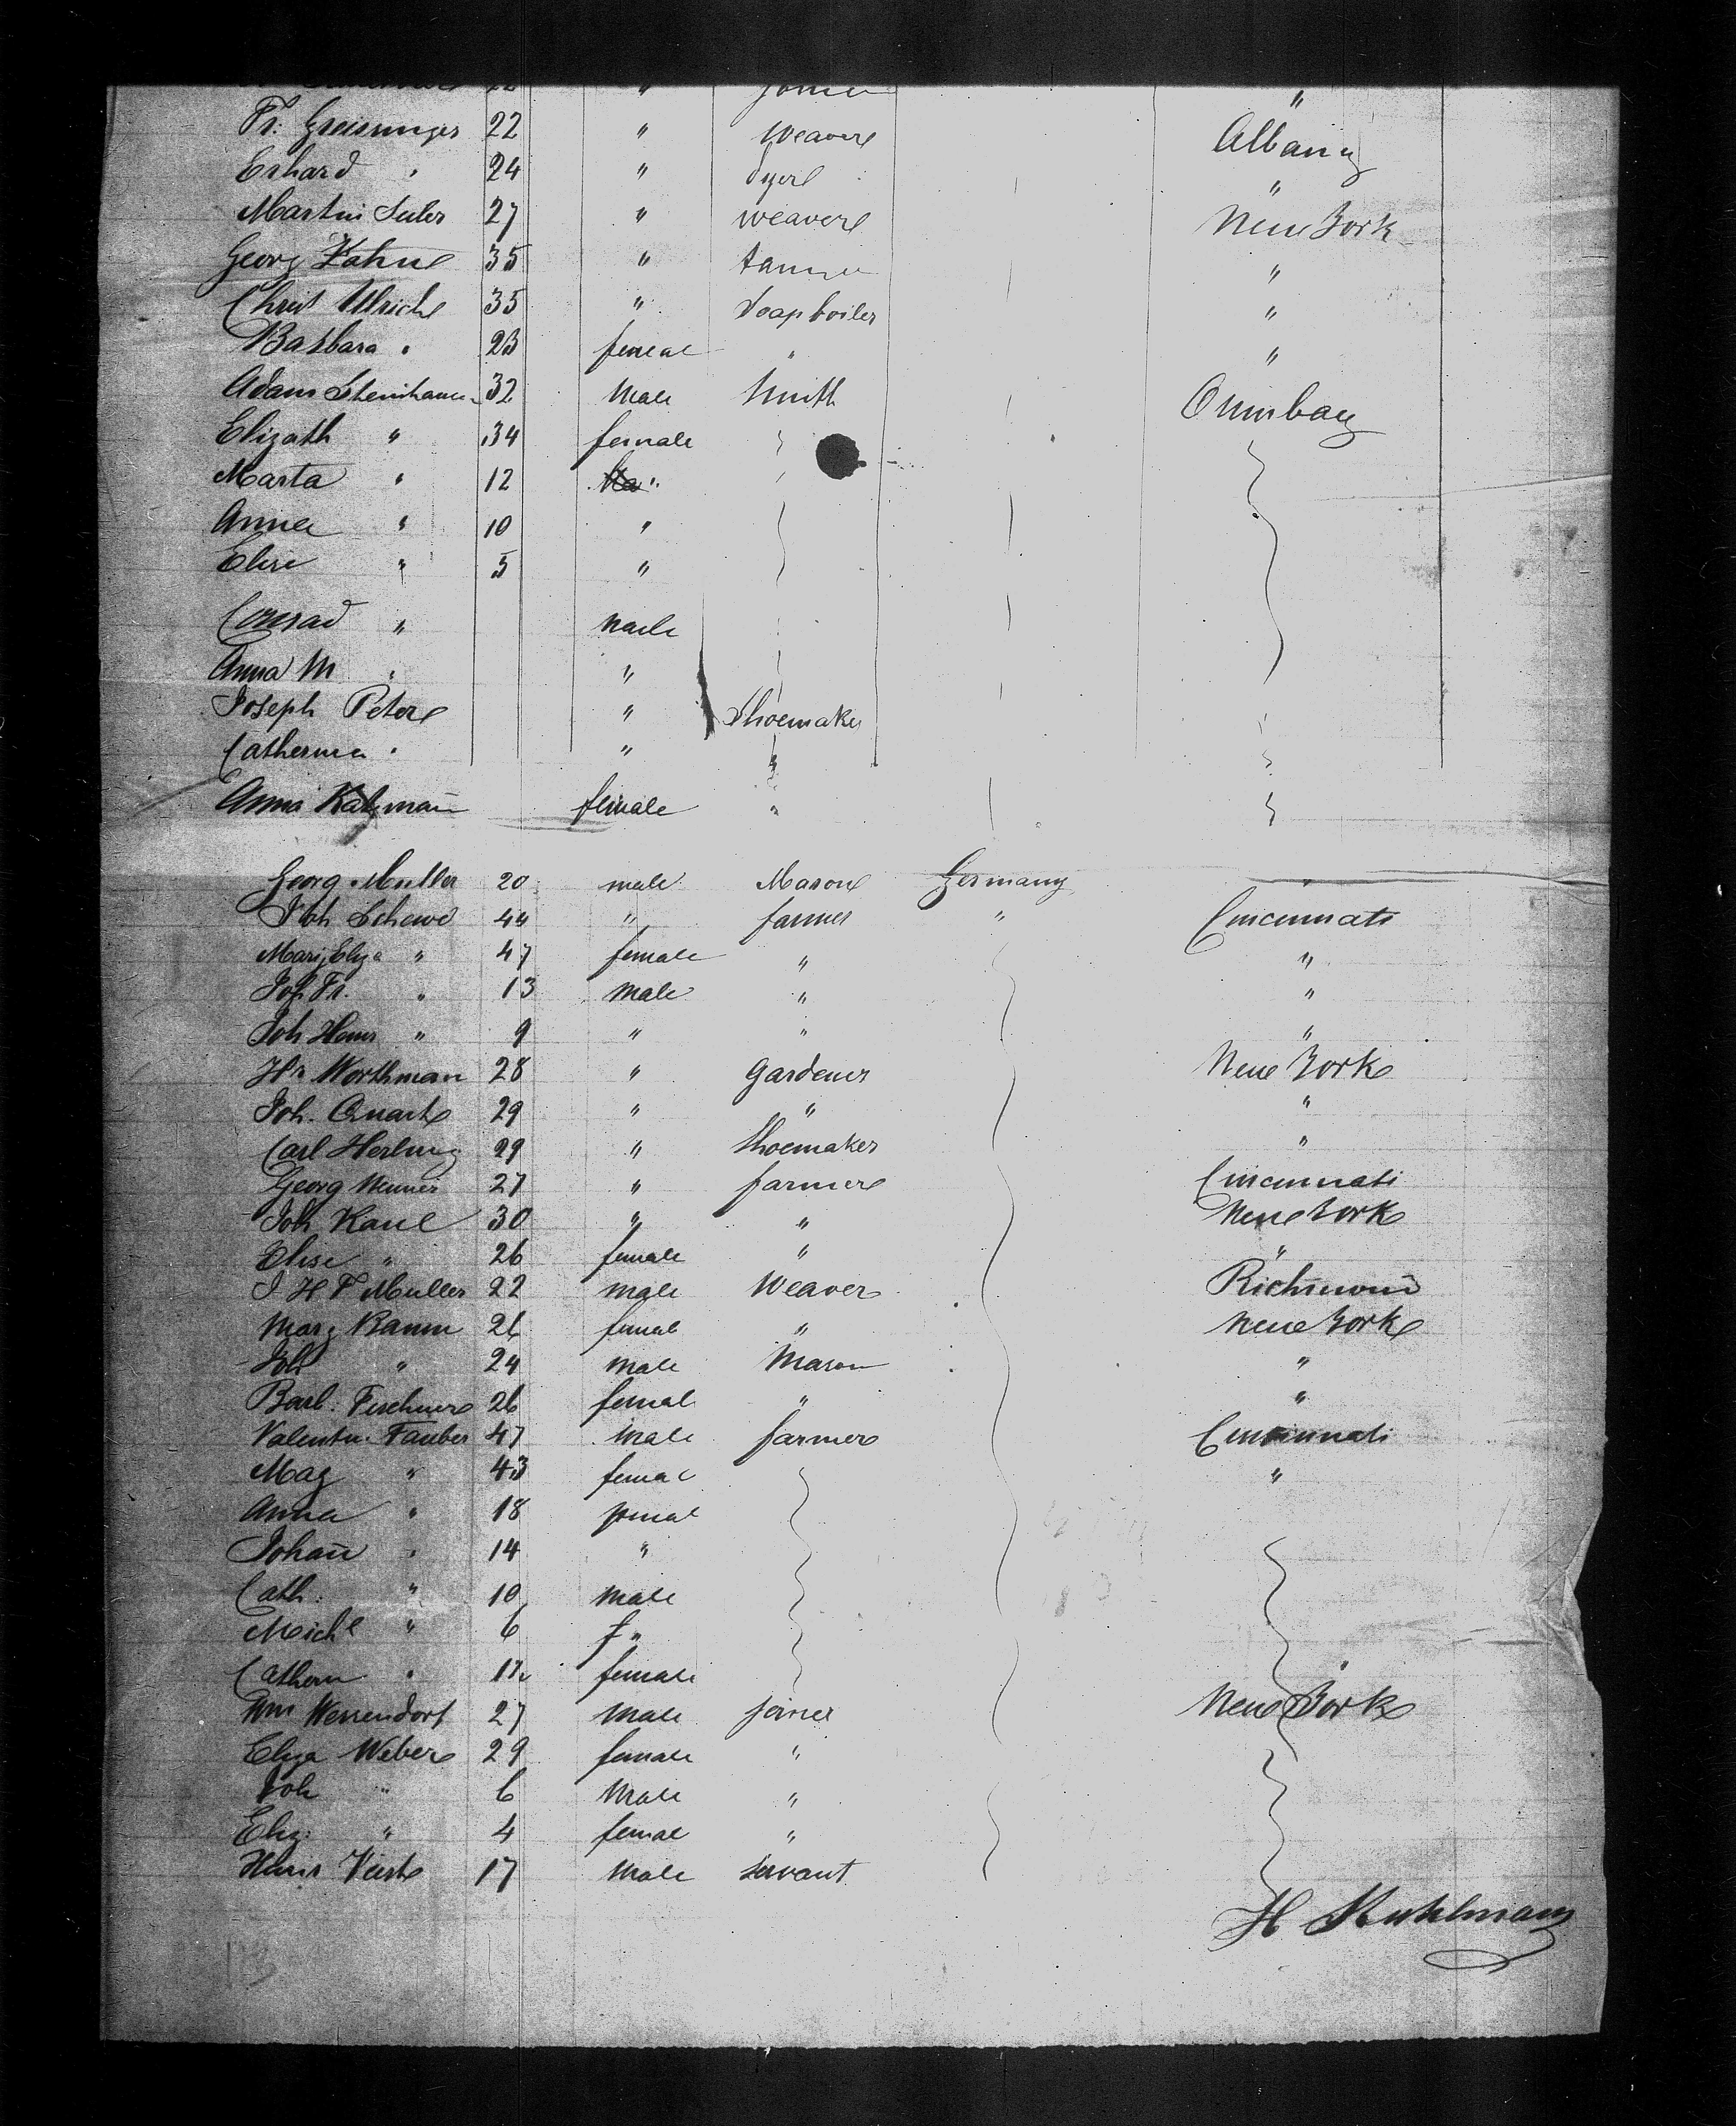 22 " Joiner "
Fr: Greisinger 22 " Weaver Albany
Erhard " 24 " dyer "
Martin Seiler 27 " weaver New York
Georg Hahne 35 " tanner "
Christ Ulrich 35 " Soapboiler "
Barbara " 23 femeal " "
Adam Steinhauer 32 Male Smith
Elizath " 34 female
Marta " 12 "
Anna " 10 "
Elise " 5 "
Conrad " maile
Anna M " "
Joseph Peter " Shoemaker
Catherina " " "
Anna Katzman̄ female "
Georg Muller 20 male Mason Germany "
Joh Schewe 44 " farmer " Cincinnati
Mary Eliza " 47 female " "
Joh Fr. " 13 male " "
Joh Henr " 9 " " "
Hr Worthman 28 " Gardener New York
Joh. Quart 29 " " "
Carl Herling 29 " Shoemaker "
Georg Wenner 27 " farmer Cincinnati
Joh Kane 30 " " New York
Elise " 26 female " "
J H F Muller 22 male Weaver Richmond
Marg Baum 26 femal " New York
Joh " 24 male Mason "
Barb. Fischner 26 femal " "
Valentin Fauber 47 male farmer Cincinnati
Mag " 43 femal "
Anna " 18 femal
Johan̄ " 14 "
Cath: " 10 male
Michl " 6 f "
Cathern " female "
Wm Wessendorf 27 male joiner New York
Eliza Weber 29 female "
Joh " 6 Male "
Eliz: " 4 femal "
17 male servant
H Kuhlmann
113